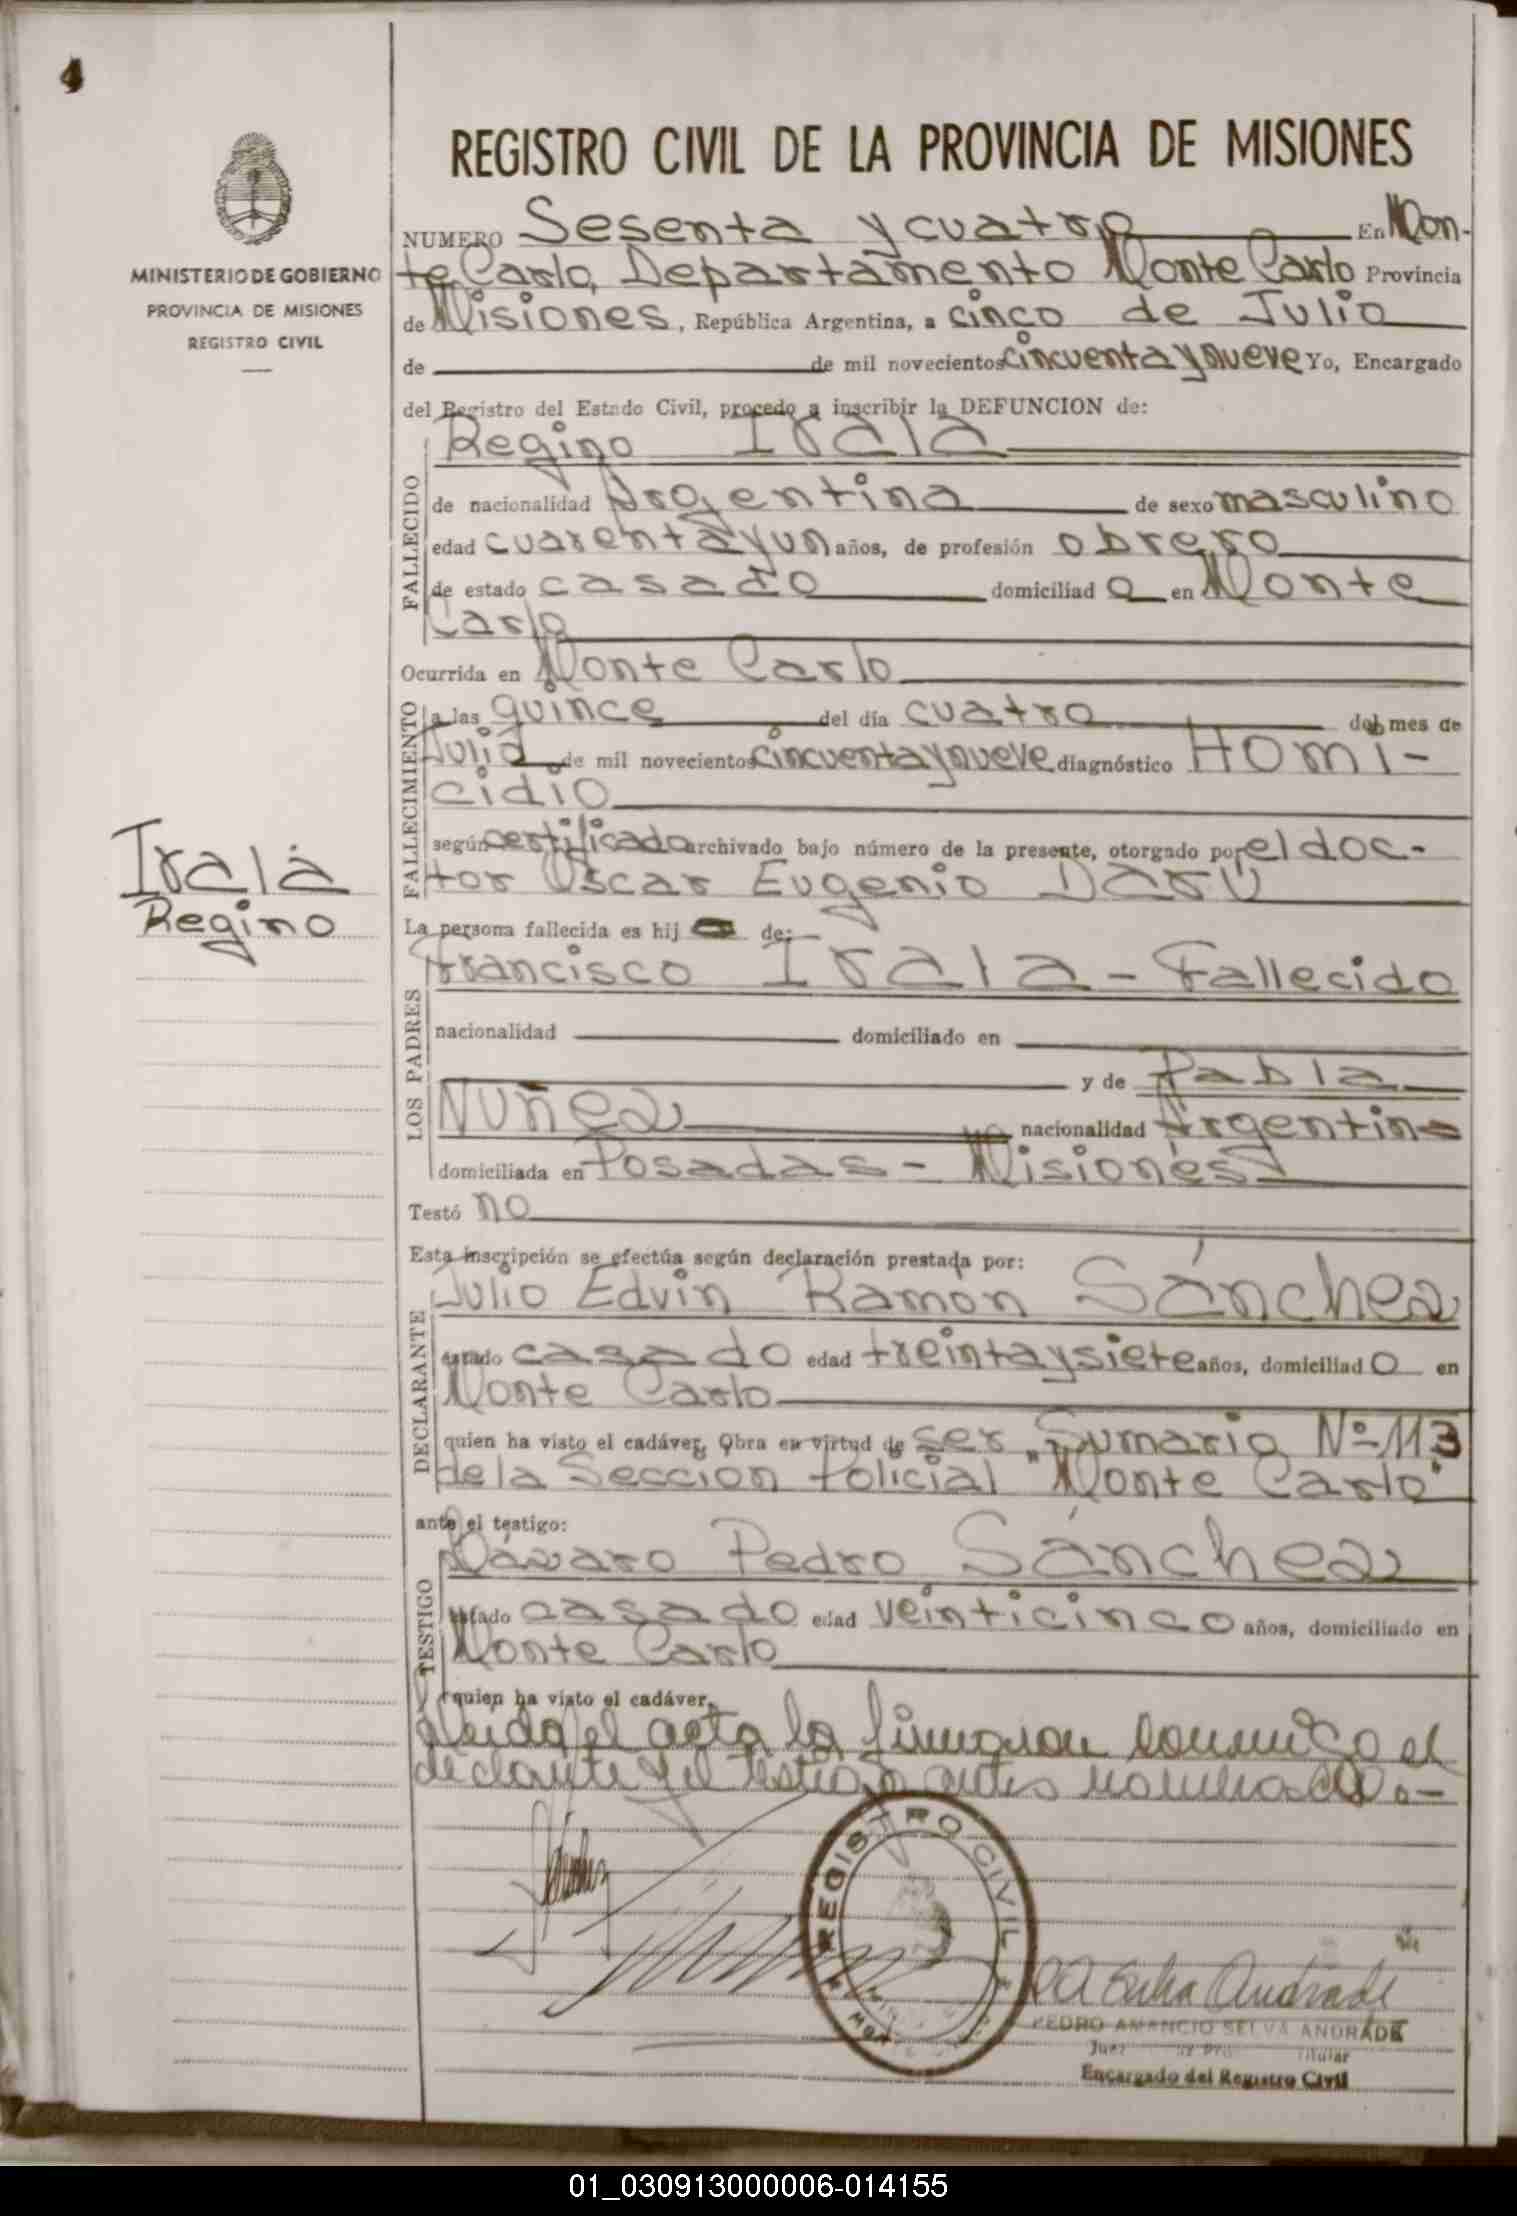 4
MINISTERIO DE GOBIERNO
PROVINCIA DE MISIONES
REGISTRO CIVIL
REGISTRO CIVIL DE LA PROVINCIA DE MISIONES
NUMERO Sesenta y cuatro En Mon-
te Carlo, Departamento Monte Carlo Provincia
de Misiones, República Argentina, a cinco de Julio
de de mil novecientos cincuenta y nueve Yo, Encargado
del Registro del Estado Civil, procedo a inscribir la DEFUNCION de:
Regino Irala
FALLECIDO
de nacionalidad Argentina de sexo masculino
edad cuarenta y un años, de profesión obrero
de estado casado domiciliad o en Monte
Carlo
Ocurrida en Monte Carlo
FALLECIMIENTO
a las quince del día cuatro del mes de
Julio de mil novecientos cincuenta y nueve diagnóstico Homi-
cidio
según certificado archivado bajo número de la presente, otorgado por el doc-
tor Oscar Eugenio Darú
Irala
Regino
La persona fallecida es hij de:
Francisco Irala - Fallecido
LOS PADRES
nacionalidad domiciliado en
y de Pabla
Nuñez nacionalidad Argentina
domiciliada en Posadas - Misiones
Testó no
Esta inscripción se efectúa según declaración prestada por:
Julio Edvin Ramon Sánchez
DECLARANTE
estado casado edad treinta y siete años, domiciliad o en
Monte Carlo
quien ha visto el cadáver, Obra en virtud de ser "Sumario Nº 113
de la Seccion Policial "Monte Carlo"
ante el testigo:
Pedro Sánchez
TESTIGO
estado casado edad veinticinco años, domiciliado en
Monte Carlo
quien ha visto el cadáver.
Leida el acta la firmaron conmigo el
declarante y el testigo antes nombrado.-
REGISTRO CIVIL
PEDRO AMANCIO SELVA ANDRADE
Juez Titular
Encargado del Registro Civil
01_030913000006-014155